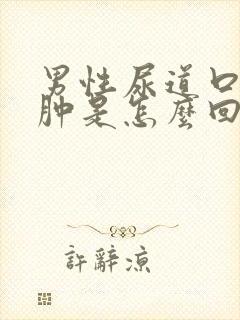 男性尿道口
肿是怎麼回
許辭凉